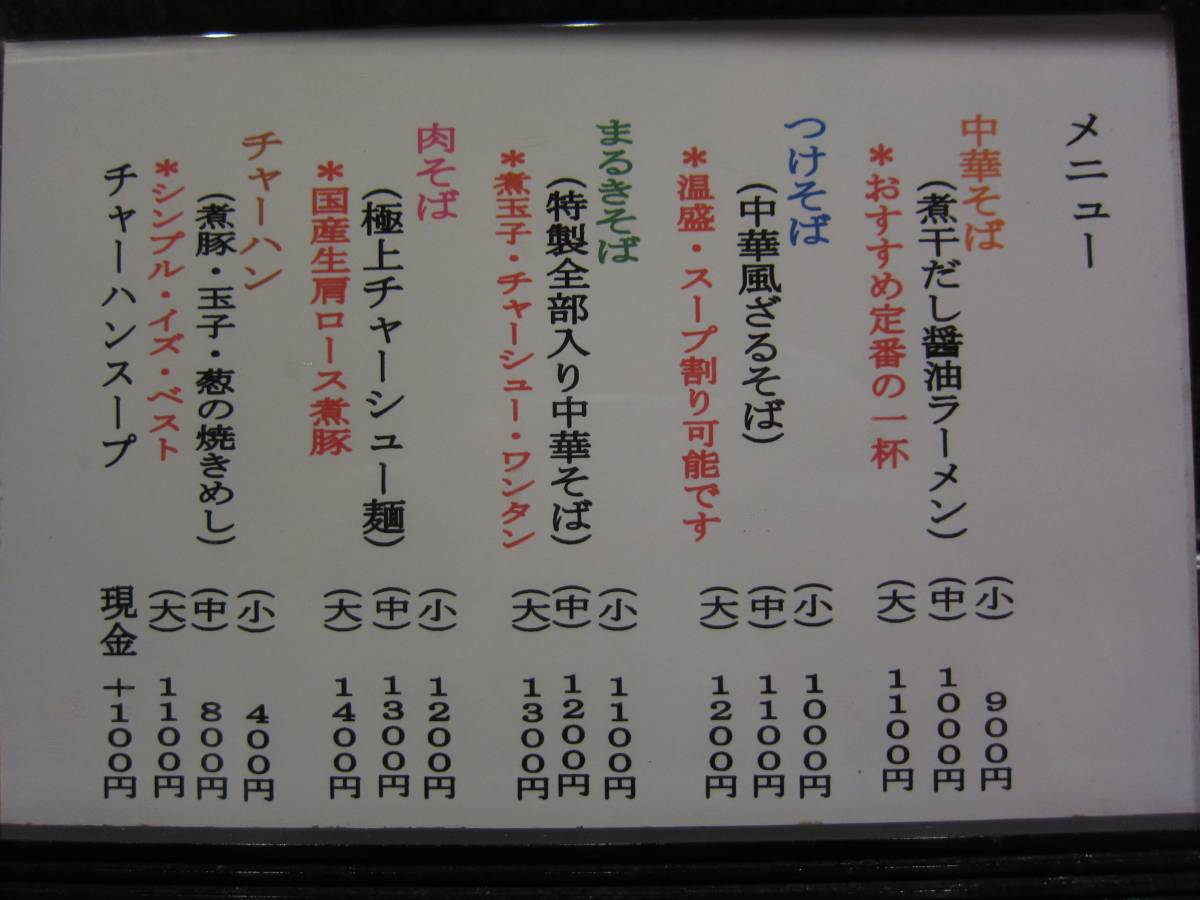 メニュー
中華そば (小) 900円
(煮干だし醤油ラーメン) (中) 1000円
＊おすすめ定番の一杯 (大) 1100円
つけそば (小) 1000円
(中華風ざるそば) (中) 1100円
＊温盛・スープ割り可能です (大) 1200円
まるきそば (小) 1100円
(特製全部入り中華そば) (中) 1200円
＊煮玉子・チャーシュー・ワンタン (大) 1300円
肉そば (小) 1200円
(極上チャーシュー麺) (中) 1300円
＊国産生肩ロース煮豚 (大) 1400円
チャーハン (小) 400円
(煮豚・玉子・葱の焼きめし) (中) 800円
＊シンプル・イズ・ベスト (大) 1100円
チャーハンスープ 現金 +100円